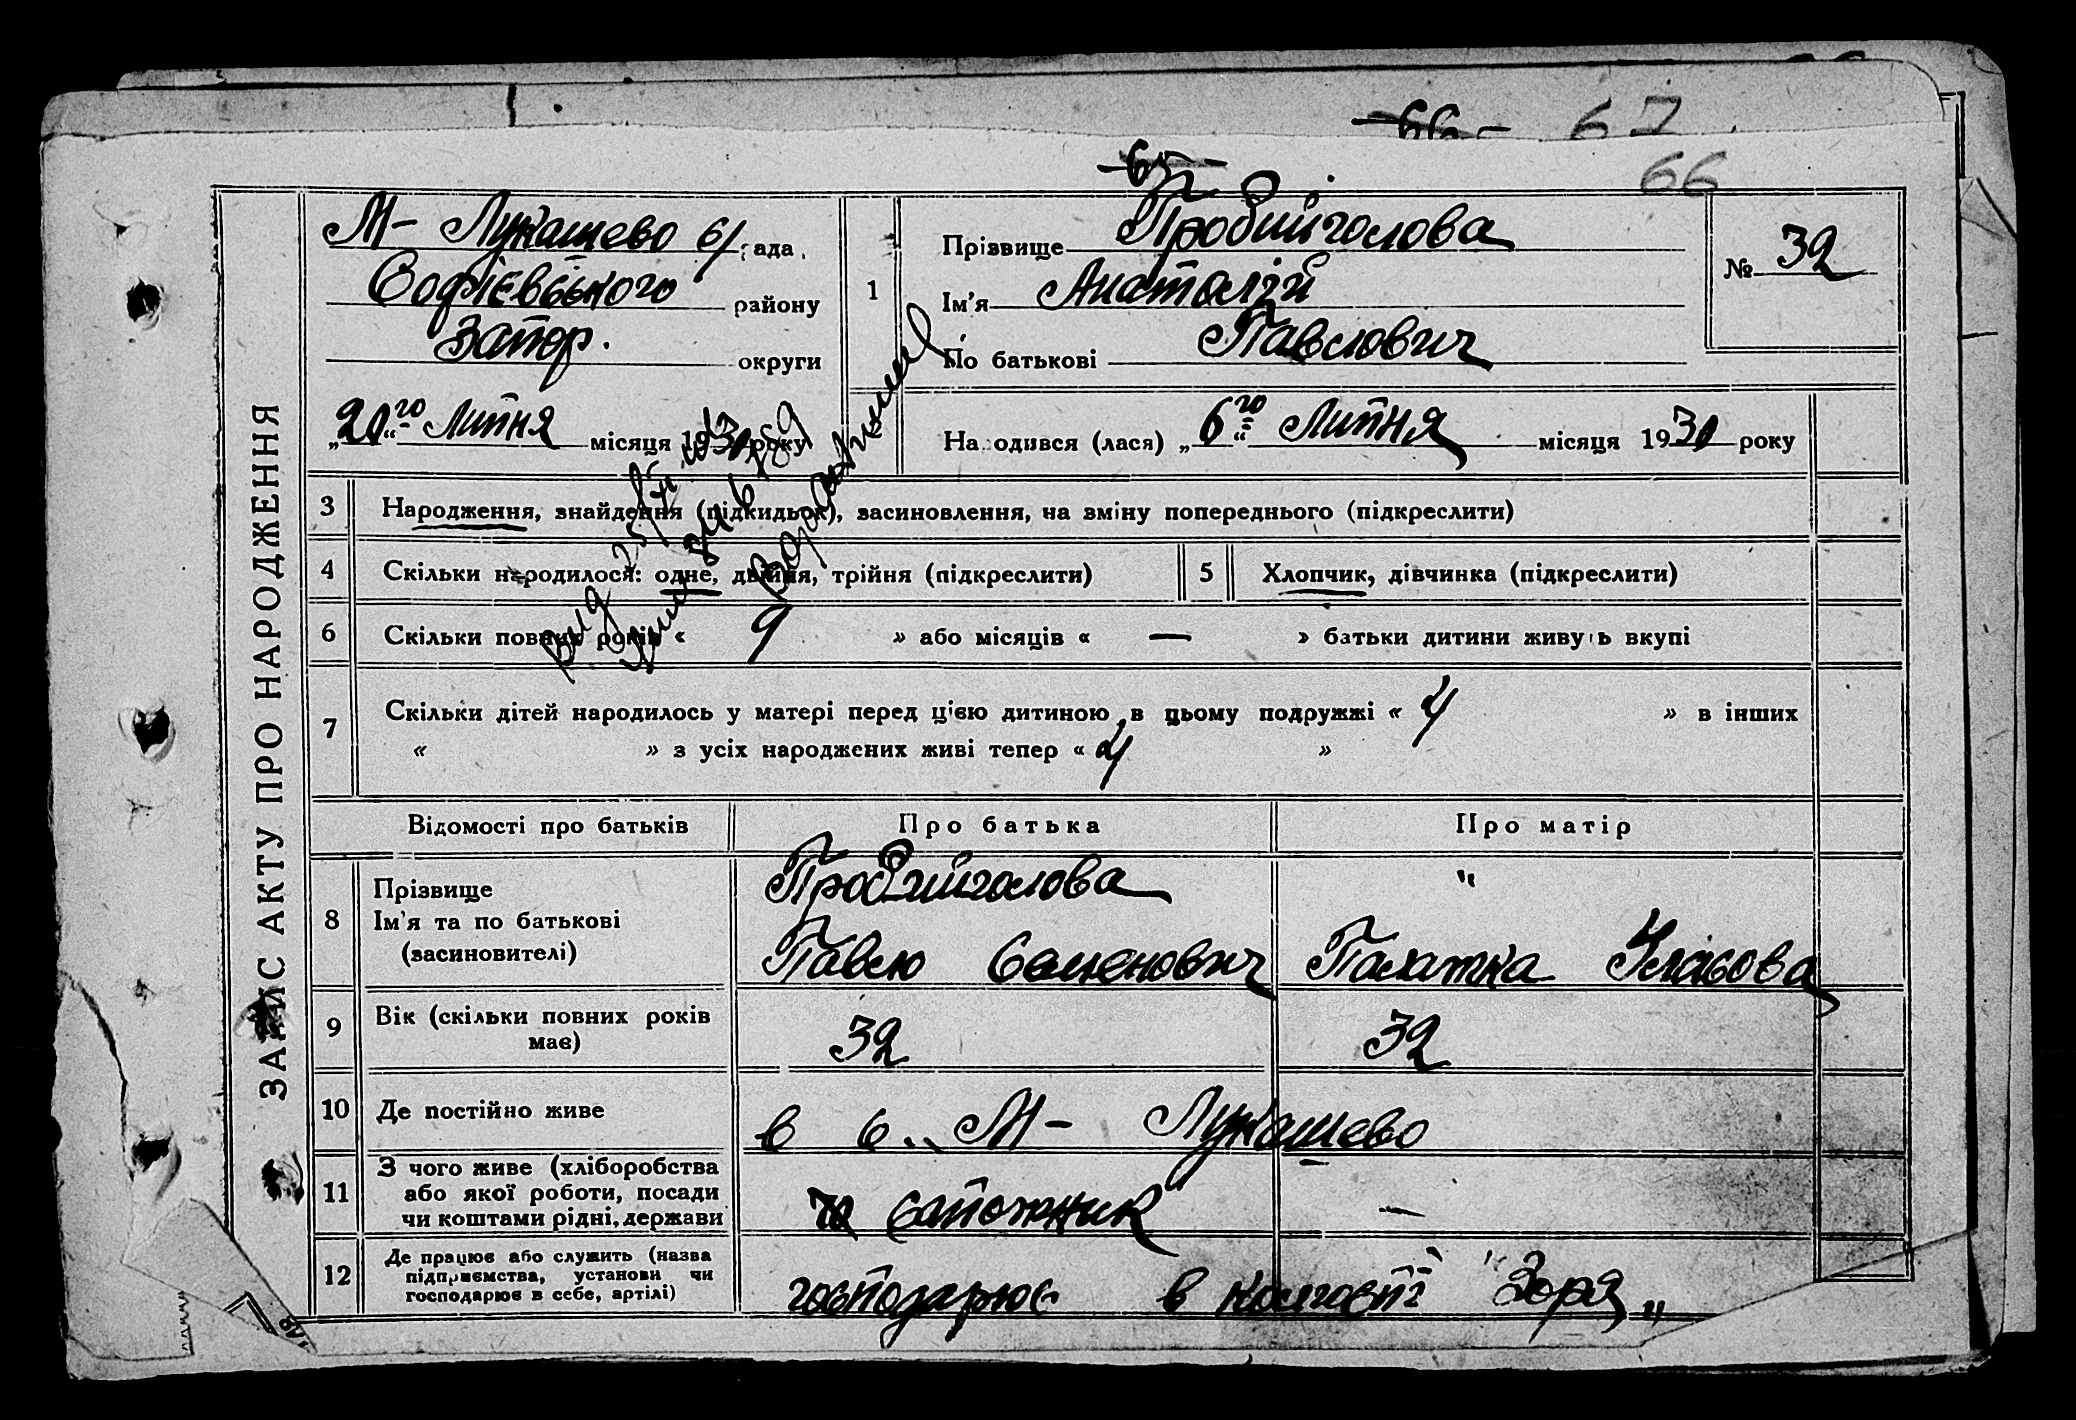 66 67
65
66
ЗАПИС АКТУ ПРО НАРОДЖЕННЯ
М- Лукашево с/рада
Софієвського району
Запор. округи
„20го“ Липня місяця 1930 року
1
Прізвище Пробийголова
Ім'я Анатолій
По батькові Павлович
№ 32
Народився (лася) „6го“ Липня місяця 1930 року
3 Народження, знайдення (підкидьок), засиновлення, на зміну попереднього (підкреслити)
4 Скільки народилося: одне, двійня, трійня (підкреслити) 5 Хлопчик, дівчинка (підкреслити)
6 Скільки повних років « 9 » або місяців « — » батьки дитини живуть вкупі
7 Скільки дітей народилось у матері перед цією дитиною в цьому подружжі « 4 » в інших
« » з усіх народжених живі тепер « 4 »
Відомості про батьків Про батька Про матір
8 Прізвище Пробийголова "
Ім'я та по батькові
(засиновителі) Павло Семенович Палажка
9 Вік (скільки повних років має) 32 32
10 Де постійно живе в с. М- Лукашево
11 З чого живе (хліборобства
або якої роботи, посади
чи коштами рідні, держави сапожник —
12 Де працює або служить (назва
підприємства, установи чи
господарює в себе, артілі) господарює в колгоспі "Зоря„